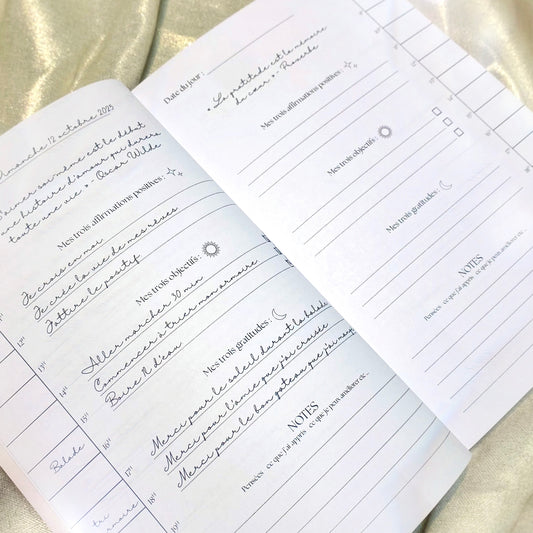 Dimanche 12 octobre 2025
S'aimer soi-même est le début
une histoire d'amour qui durera
toute une vie » - Oscar Wilde
Mes trois affirmations positives :
Je crois en moi
Je crée la vie de mes rêves
J'attire le positif
Mes trois objectifs :
Aller marcher 30 min
Commencer à trier mon armoire
Boire 1L d'eau
Mes trois gratitudes :
Merci pour le soleil durant la balade
Merci pour l'amie que j'ai croisée
Merci pour le bon gâteau que j'ai
NOTES
Pensées ce que j'ai appris ce que je peux améliorer etc...
12H
13H
14H
15H
16H
17H
18H
19H
Balade
tri
armoire
Date du jour :
« La gratitude est la mémoire
du cœur » - Proverbe
Mes trois affirmations positives :
Mes trois objectifs :
Mes trois gratitudes :
NOTES
Pensées ce que j'ai appris ce que je peux améliorer etc...